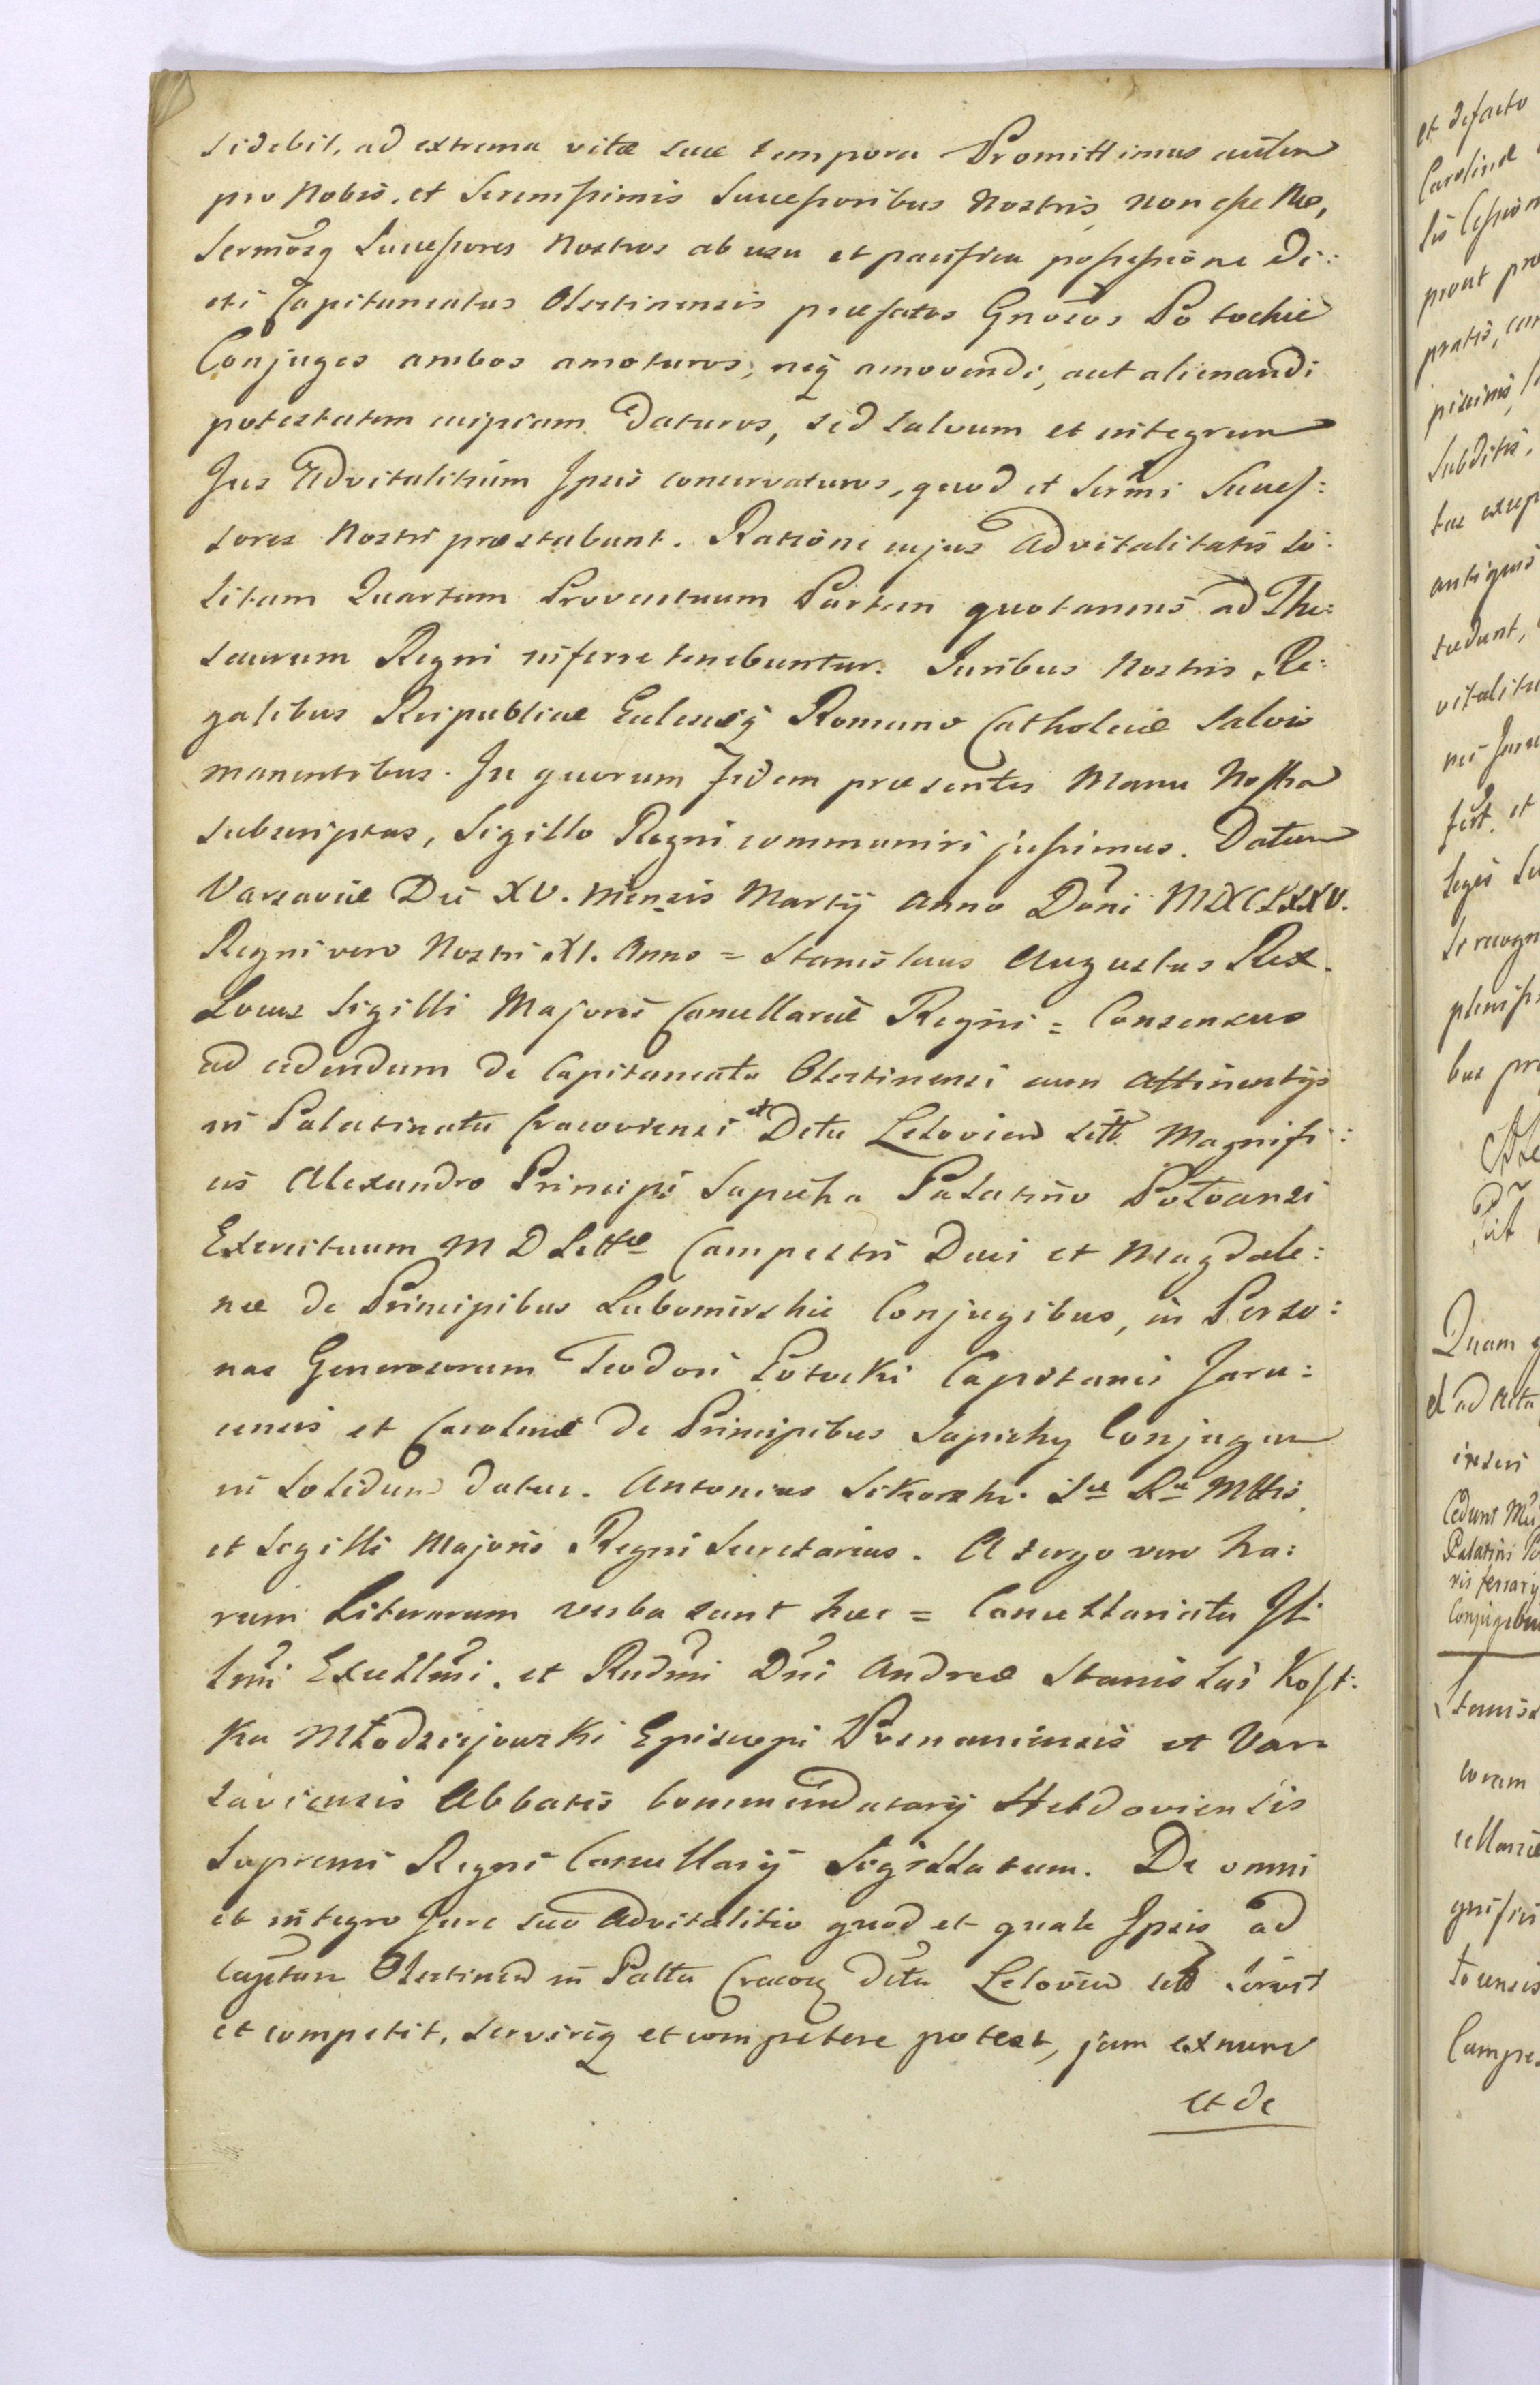 sidebit, ad extrema vitæ suæ tempora Promittimus autem
pro Nobis, et Serenissimis Successoribus Nostris, non esse Nos,
Sermosq Successores Nostros ab usu et pacifica possessione Di:
cti Capitaneatus Olsztinensis præfatos Gnosos Potockie
Conjuges ambos amoturos, neq amovendi, aut alienandi
potestatem cuipiam Daturos, sed salvum et integrum
Jus Advitalitium Ipsis conservaturos, quod et Sermi Succes:
sores Nostri præstabunt. Ratione cujus Advitalitatis so:
litam Quartam Proventuum Partem quotannis ad The:
saurum Regni inferre tenebuntur. Juribus Nostris, Re:
galibus Reipublicæ Eclesiæq Romano Catholicæ salvis
manentibus. In quorum Fidem præsentes Manu Nostra
subscriptas, Sigillo Regni communiri jussimus. Datum
Varsaviæ Die XV. Mensis Martij Anno Dōni MDCCLXXV.
Regni vero Nostri XI. Anno = Stanislaus Augustus Rex.
Locus Sigilli Majoris Cancellariæ Regni = Consensus
ad cedendum de Capitaneatu Olsztinensi cum attinentijs
in Palatinatu Cracoviensi et Dctu Leloviēn sitt Magnifi:
cis Alexandro Principi Sapieha Palatino Połocensi
Exercituum M D Littæ Campestri Duci et Magdale:
næ de Principibus Lubomirskie Conjugibus, in Perso:
nas Generosorum Teodori Potocki Capitanei
et Carolinæ de Principibus Sapiehy Conjugum
in solidum datus. Antonius Sikorski Sæ Ræ Mttis
et Sigilli Majoris Regni Secretarius. A tergo vero ha:
rum Literarum verba sunt hæc = Cancellariatu Ill:
lmi Excellmi. et Rndmi Dni Andreæ Stanislai Kost:
ka Młodziejowski Episcopi Posnaniensis et Var:
saviensis Abbatis Commendatarij Hebdoviensis
Supremi Regni Cancellarij Sigillatum. De omni
et integro Jure suo Advitalitio quod et quale Ipsis ad
Capitum Olsztinen in Palttu Cracov dctu Lelovien sitt servit
et competit, servireq et competere potest, jam exnunc
et de